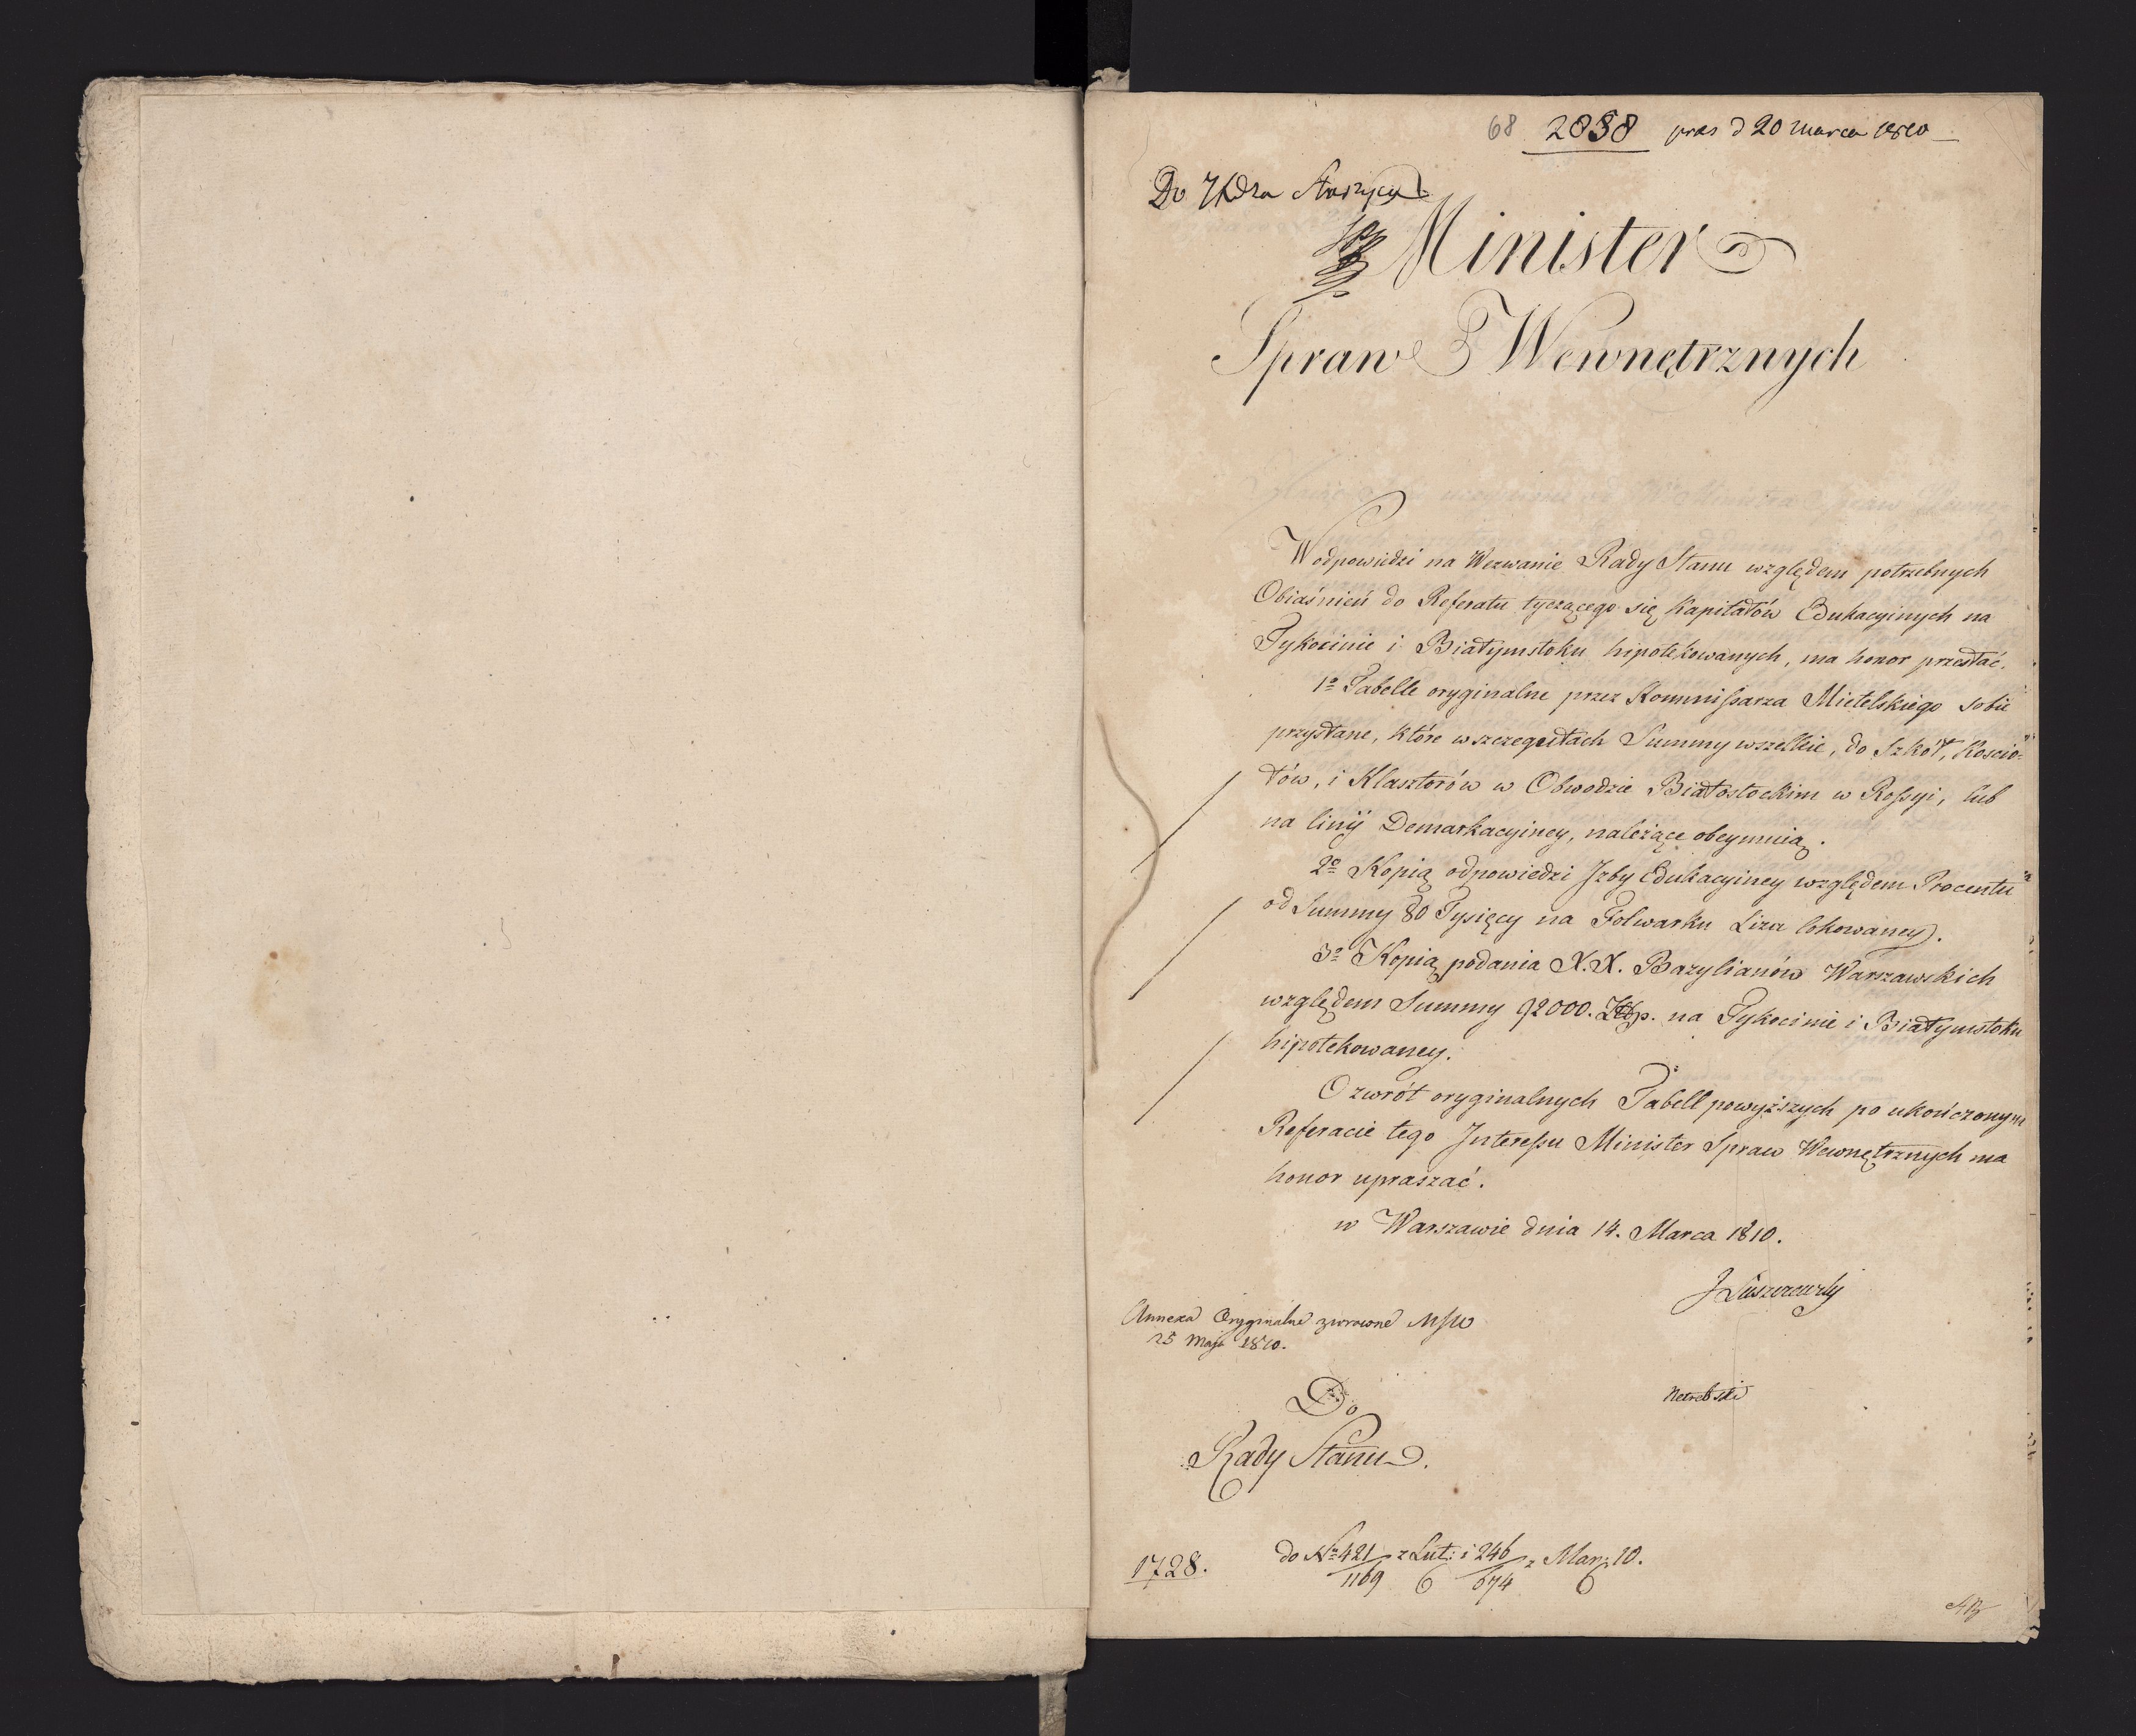 68 2838 pras d 20 Marca 1810
Do
Minister
Spraw Wewnętrznych
W odpowiedzi na Wezwanie Rady Stanu względem potrzebnych
Obiaśnień do Referatu tyczącego się Kapitałów Edukacyinych na
Tykocinie i Białymstoku hipotekowanych, ma honor przesłać.
1º Tabelle oryginalne przez Kommissarza Mietelskiego sobie
przysłane, które w szczegułach Summy wszelkie, do Szkół, Kościo=
łów, i Klasztorów w Obwodzie Białostockim w Rossyi, lub
na linij Demarkacyiney, należące obeymuią.
2º Kopią odpowiedzi Jzby Edukacyiney względem Procentu
od Summy 80 Tysięcy na Folwarku Liza lokowaney.
3º Kopią podania X.X. Bazylianów Warszawskich
względem Summy 92000. Złp. na Tykocinie i Białymstoku
hipotekowaney.
O zwrót oryginalnych Tabell powyższych po ukończonym
Referacie tego Jnteressu Minister Spraw Wewnętrznych ma
honor upraszać.
w Warszawie dnia 14. Marca 1810.
J Łuszczewski
Annexa Oryginalne zwrocone MSW
25 Maja 1810.
Do
Rady Stanu.
1728.
do Nº 421/1169 z Lut: i 246/674 z Mar: 10.